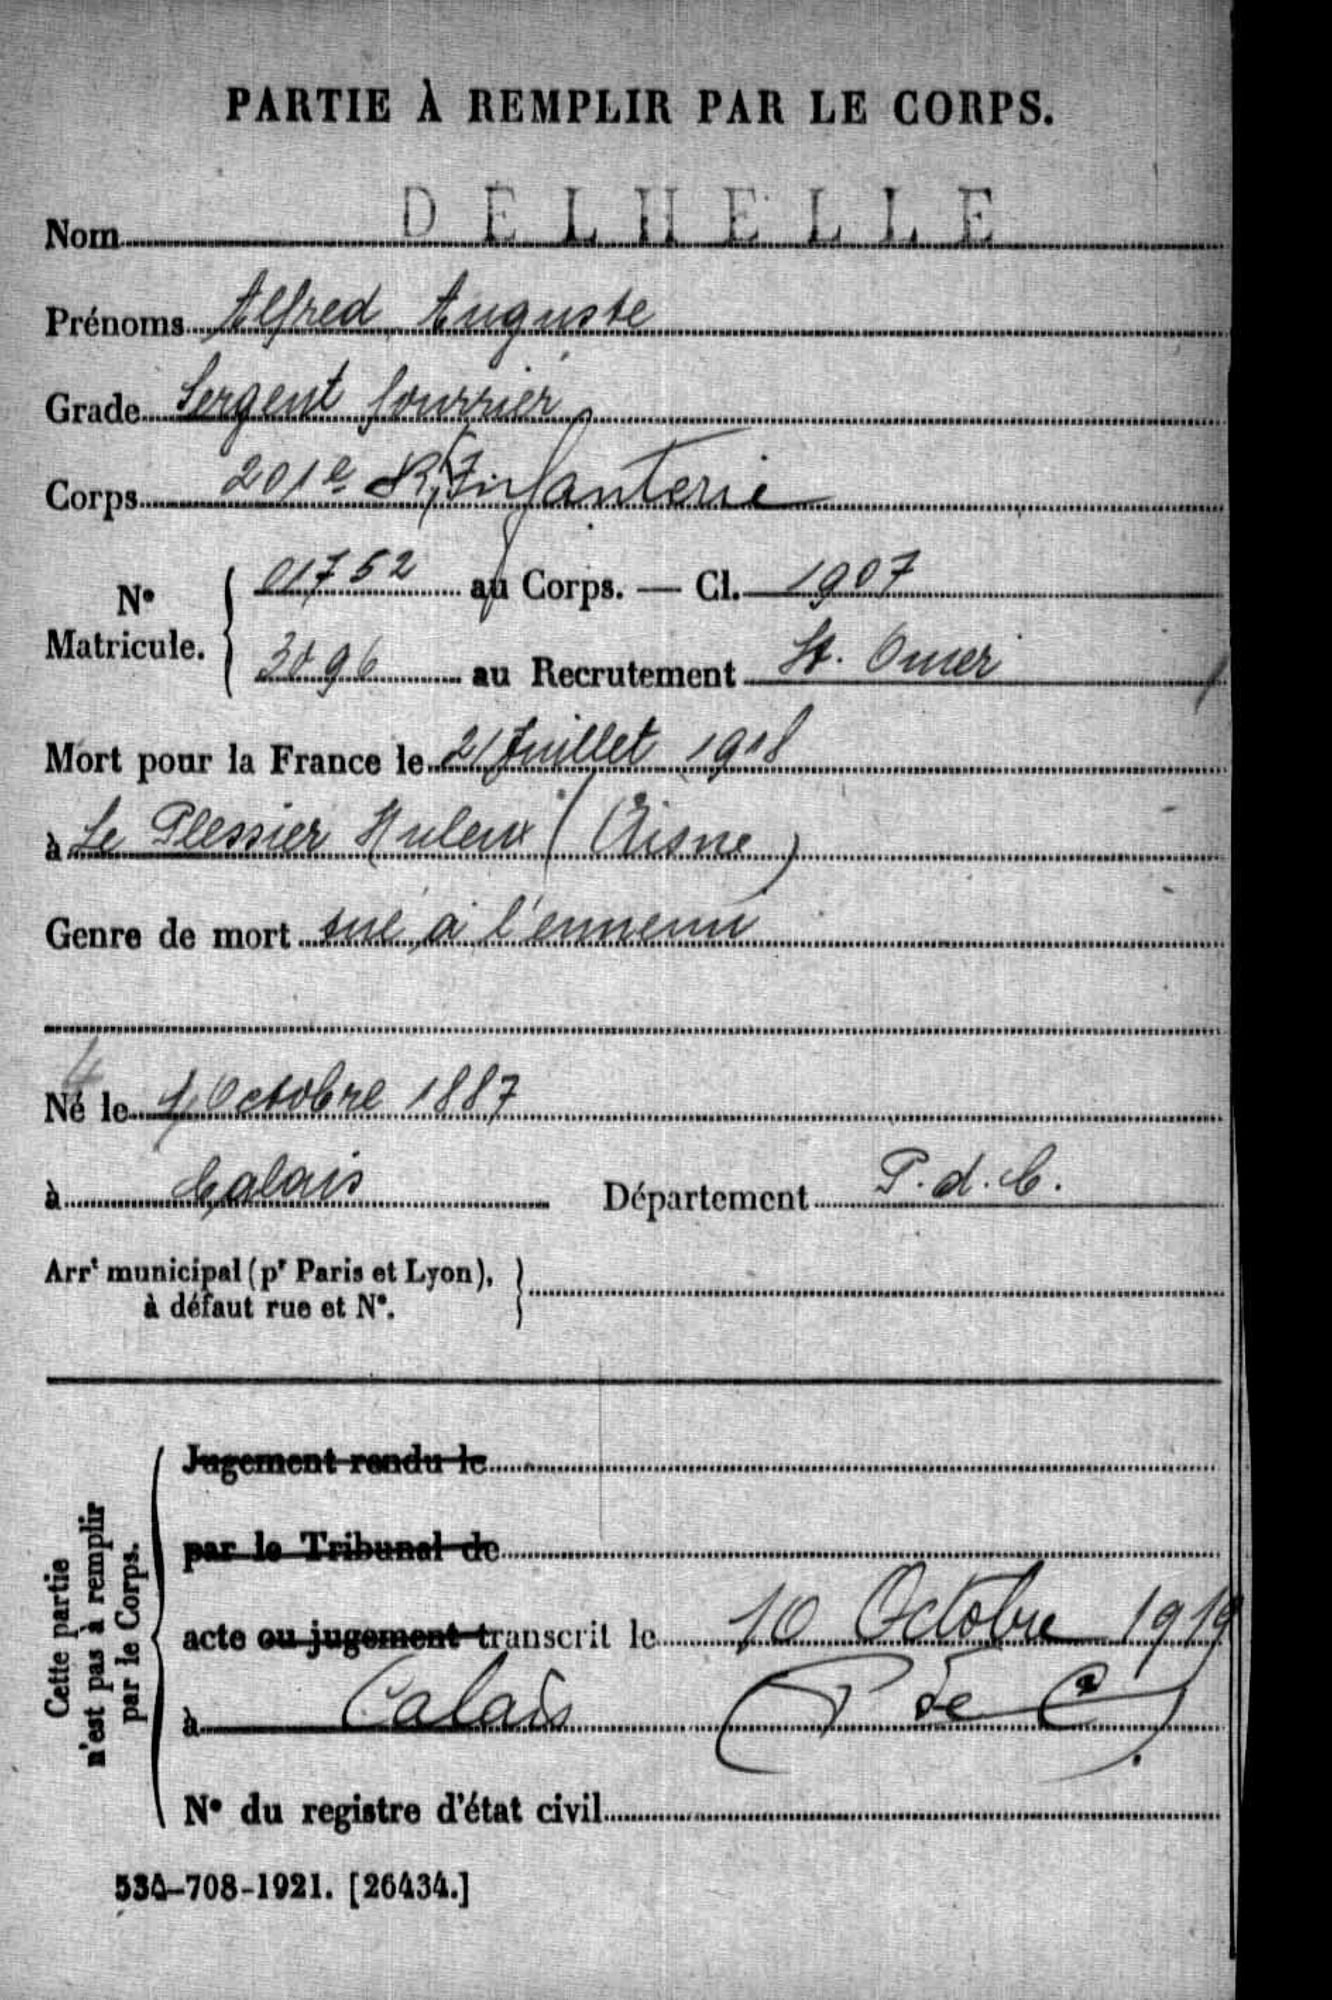 PARTIE À REMPLIR PAR LE CORPS.
Nom DELHELLE
Prénoms Alfred Auguste
Grade Sergent fourrier
Corps 201e R. Infanterie
No Matricule. { 01752 au Corps. — Cl. 1907
3096 au Recrutement St. Omer
Mort pour la France le 21 Juillet 1918
à Le Plessier Huleux (Aisne)
Genre de mort tué à l'ennemi
4
Né le 4 Octobre 1887
à Calais Département P. d. C.
Arrt municipal (pr Paris et Lyon), à défaut rue et No. }
Cette partie n'est pas à remplir par le Corps. {
Jugement rendu le
par le Tribunal de
acte ou jugement transcrit le 10 Octobre 1919
à Calais (P de C)
No du registre d'état civil
534-708-1921. [26434.]